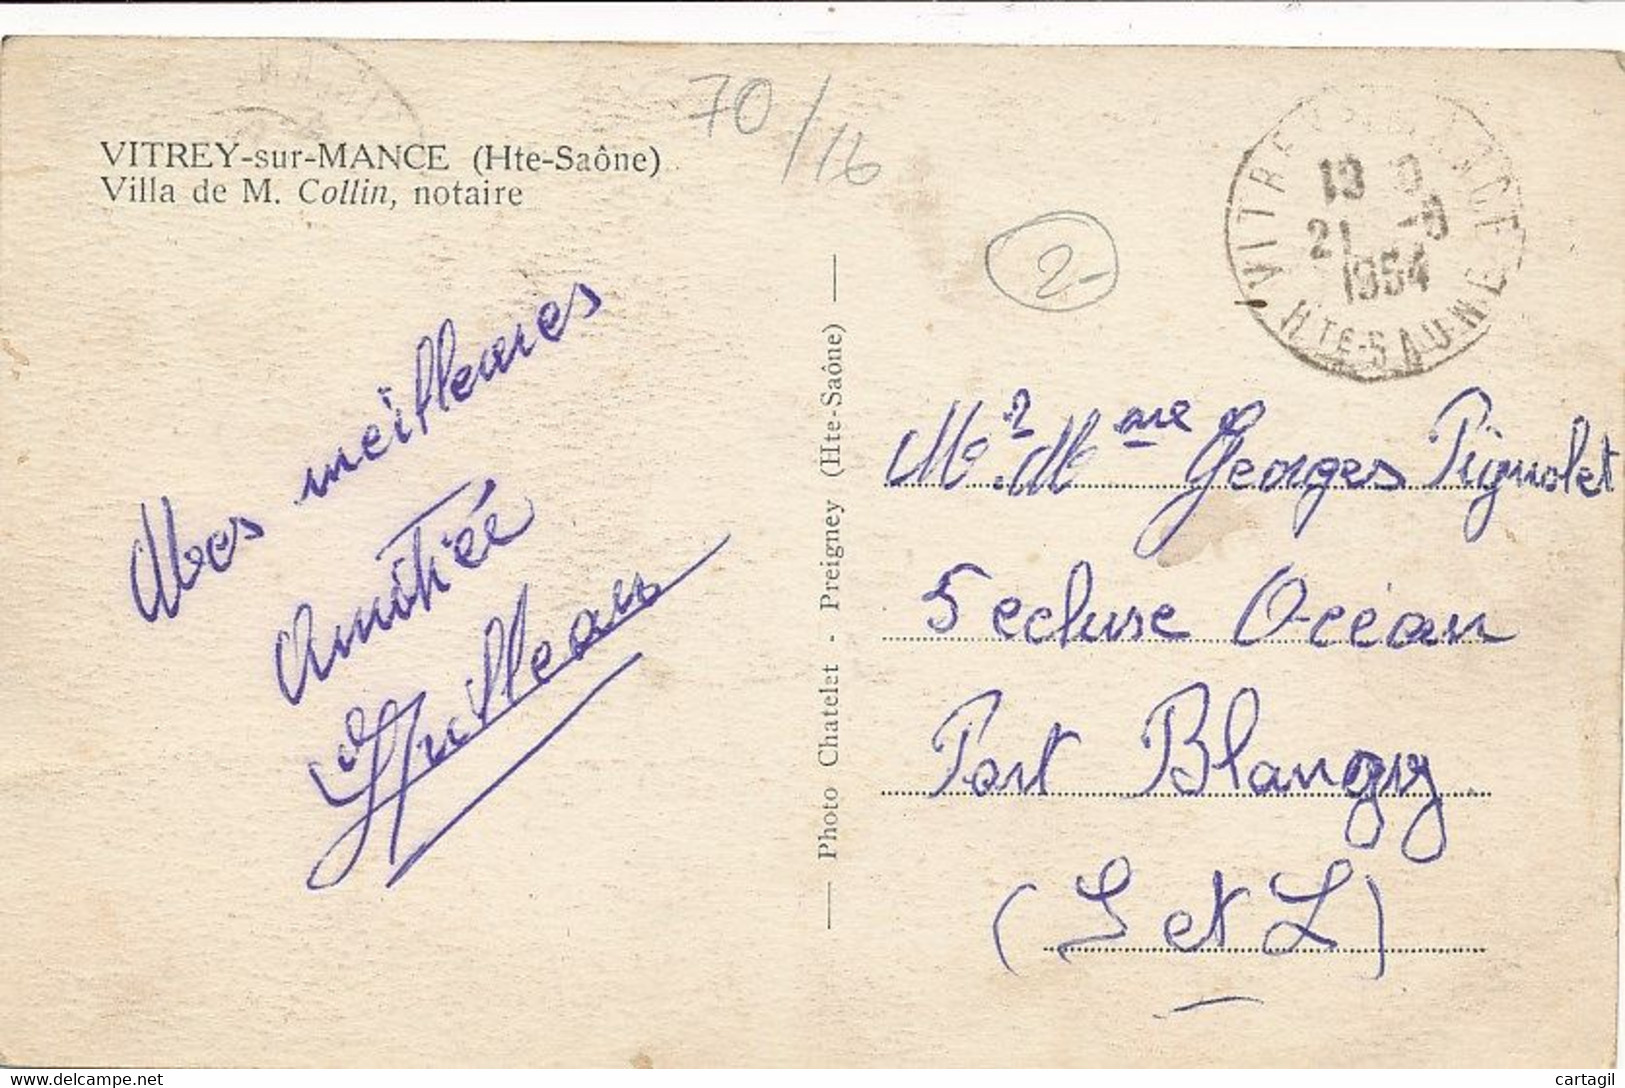 70/16
VITREY-sur-MANCE (Hte-Saône)
Villa de M. Collin, notaire
2-
13
21 -9
1954
HTE-SAONE
Nos meilleures
Amitiée
Photo Chatelet - Preigney (Hte-Saône)
M. & Mme Georges Pignolet
5 ecluse Océan
Port Blangy
(S et L)
cartagil